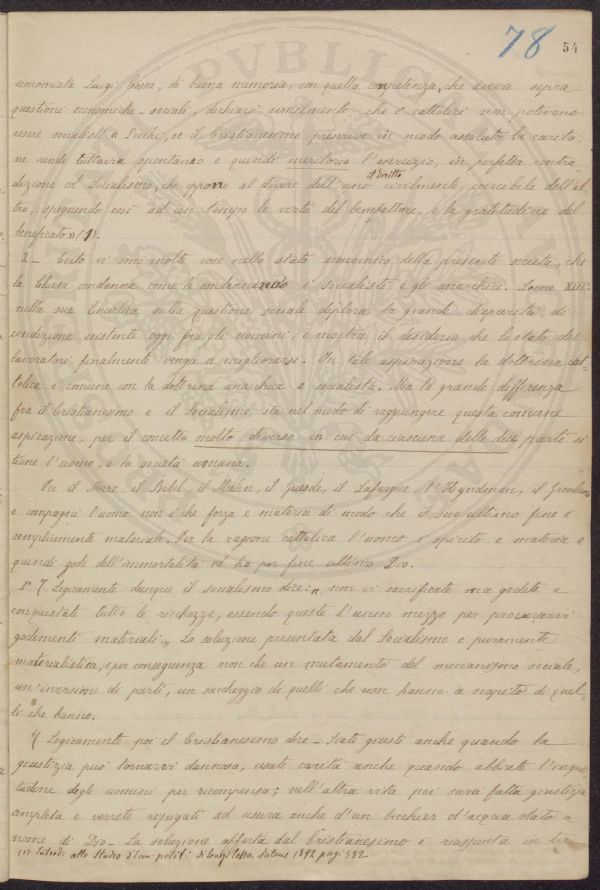 78 54
nomista Luigi Cossa, di buona memoria, con quella competenza, che aveva sopra
questioni economiche-sociali, dichiarò similmente che i cattolici non potevano
essere socialisti « Perchè, se il Cristianesimo prescrive in modo assoluto la carità,
ne rende tuttavia spontaneo e quindi meritorio l'esercizio, in perfetta contra
dizione col Socialismo, che oppone al dovere dell'uno il diritto civilmente coercibile dell'al
tro, spegnendo così ad un tempo le virtù del benefattore, e la gratitudine del
beneficato » (1).
2 - Certo vi sono molte cose nello stato economico della presente società, che
la Chiesa condanna come le condannando i socialisti e gli anarchici. Leone XIII
nella sua Enciclica sulla questione sociale deplora la grande disparità di
condizione esistente oggi fra gli uomini, e mostra il desiderio che lo stato dei
lavoratori finalmente venga a migliorarsi. In tale aspirazione la dottrina cat-
tolica è comune con la dottrina anarchica e socialista. Ma la grande differenza
fra il Cristianesimo e il Socialismo sta nel modo di raggiungere questa comune
aspirazione, per il concetto molto diverso in cui da ciascuna delle due parti si
tiene l'uomo, e la società umana.
Per il Marx, il Bebel, il Malon, il Guesde, il Lafargue, l'Hyndman, il
e compagni l'uomo non è che forza e materia di modo che il suo ultimo fine è
semplicemente materiale. Per la ragione cattolica l'uomo è spirito e materia e
quindi gode dell'immortalità ed ha per fine ultimo Dio.
Logicamente dunque il socialismo dice: „ non vi sacrificate ma godete e
conquistate tutte le ricchezze, essendo queste l'unico mezzo per procurarvi
godimenti materiali „ La soluzione presentata dal Socialismo è puramente
materialistica, e per conseguenza non che un mutamento del meccanismo sociale,
un'inversione di parti, un saccheggio di quelli che non hanno a scapito di quel-
li che hanno.
Logicamente poi il Cristianesimo dice - Siate giusti anche quando la
giustizia può tornarvi dannosa, usate carità anche quando abbiate l'ingra-
titudine degli uomini per ricompensa; nell'altra vita poi sarà fatta giustizia
completa e verrete ripagati ad usura anche d'un bicchier d'acqua dato a
nome di Dio - La soluzione offerta dal Cristianesimo è riassunta in tre
(1) Introdz. allo Studio d'Econ. polit. di Luigi Cossa, Milano 1892 pag. 532